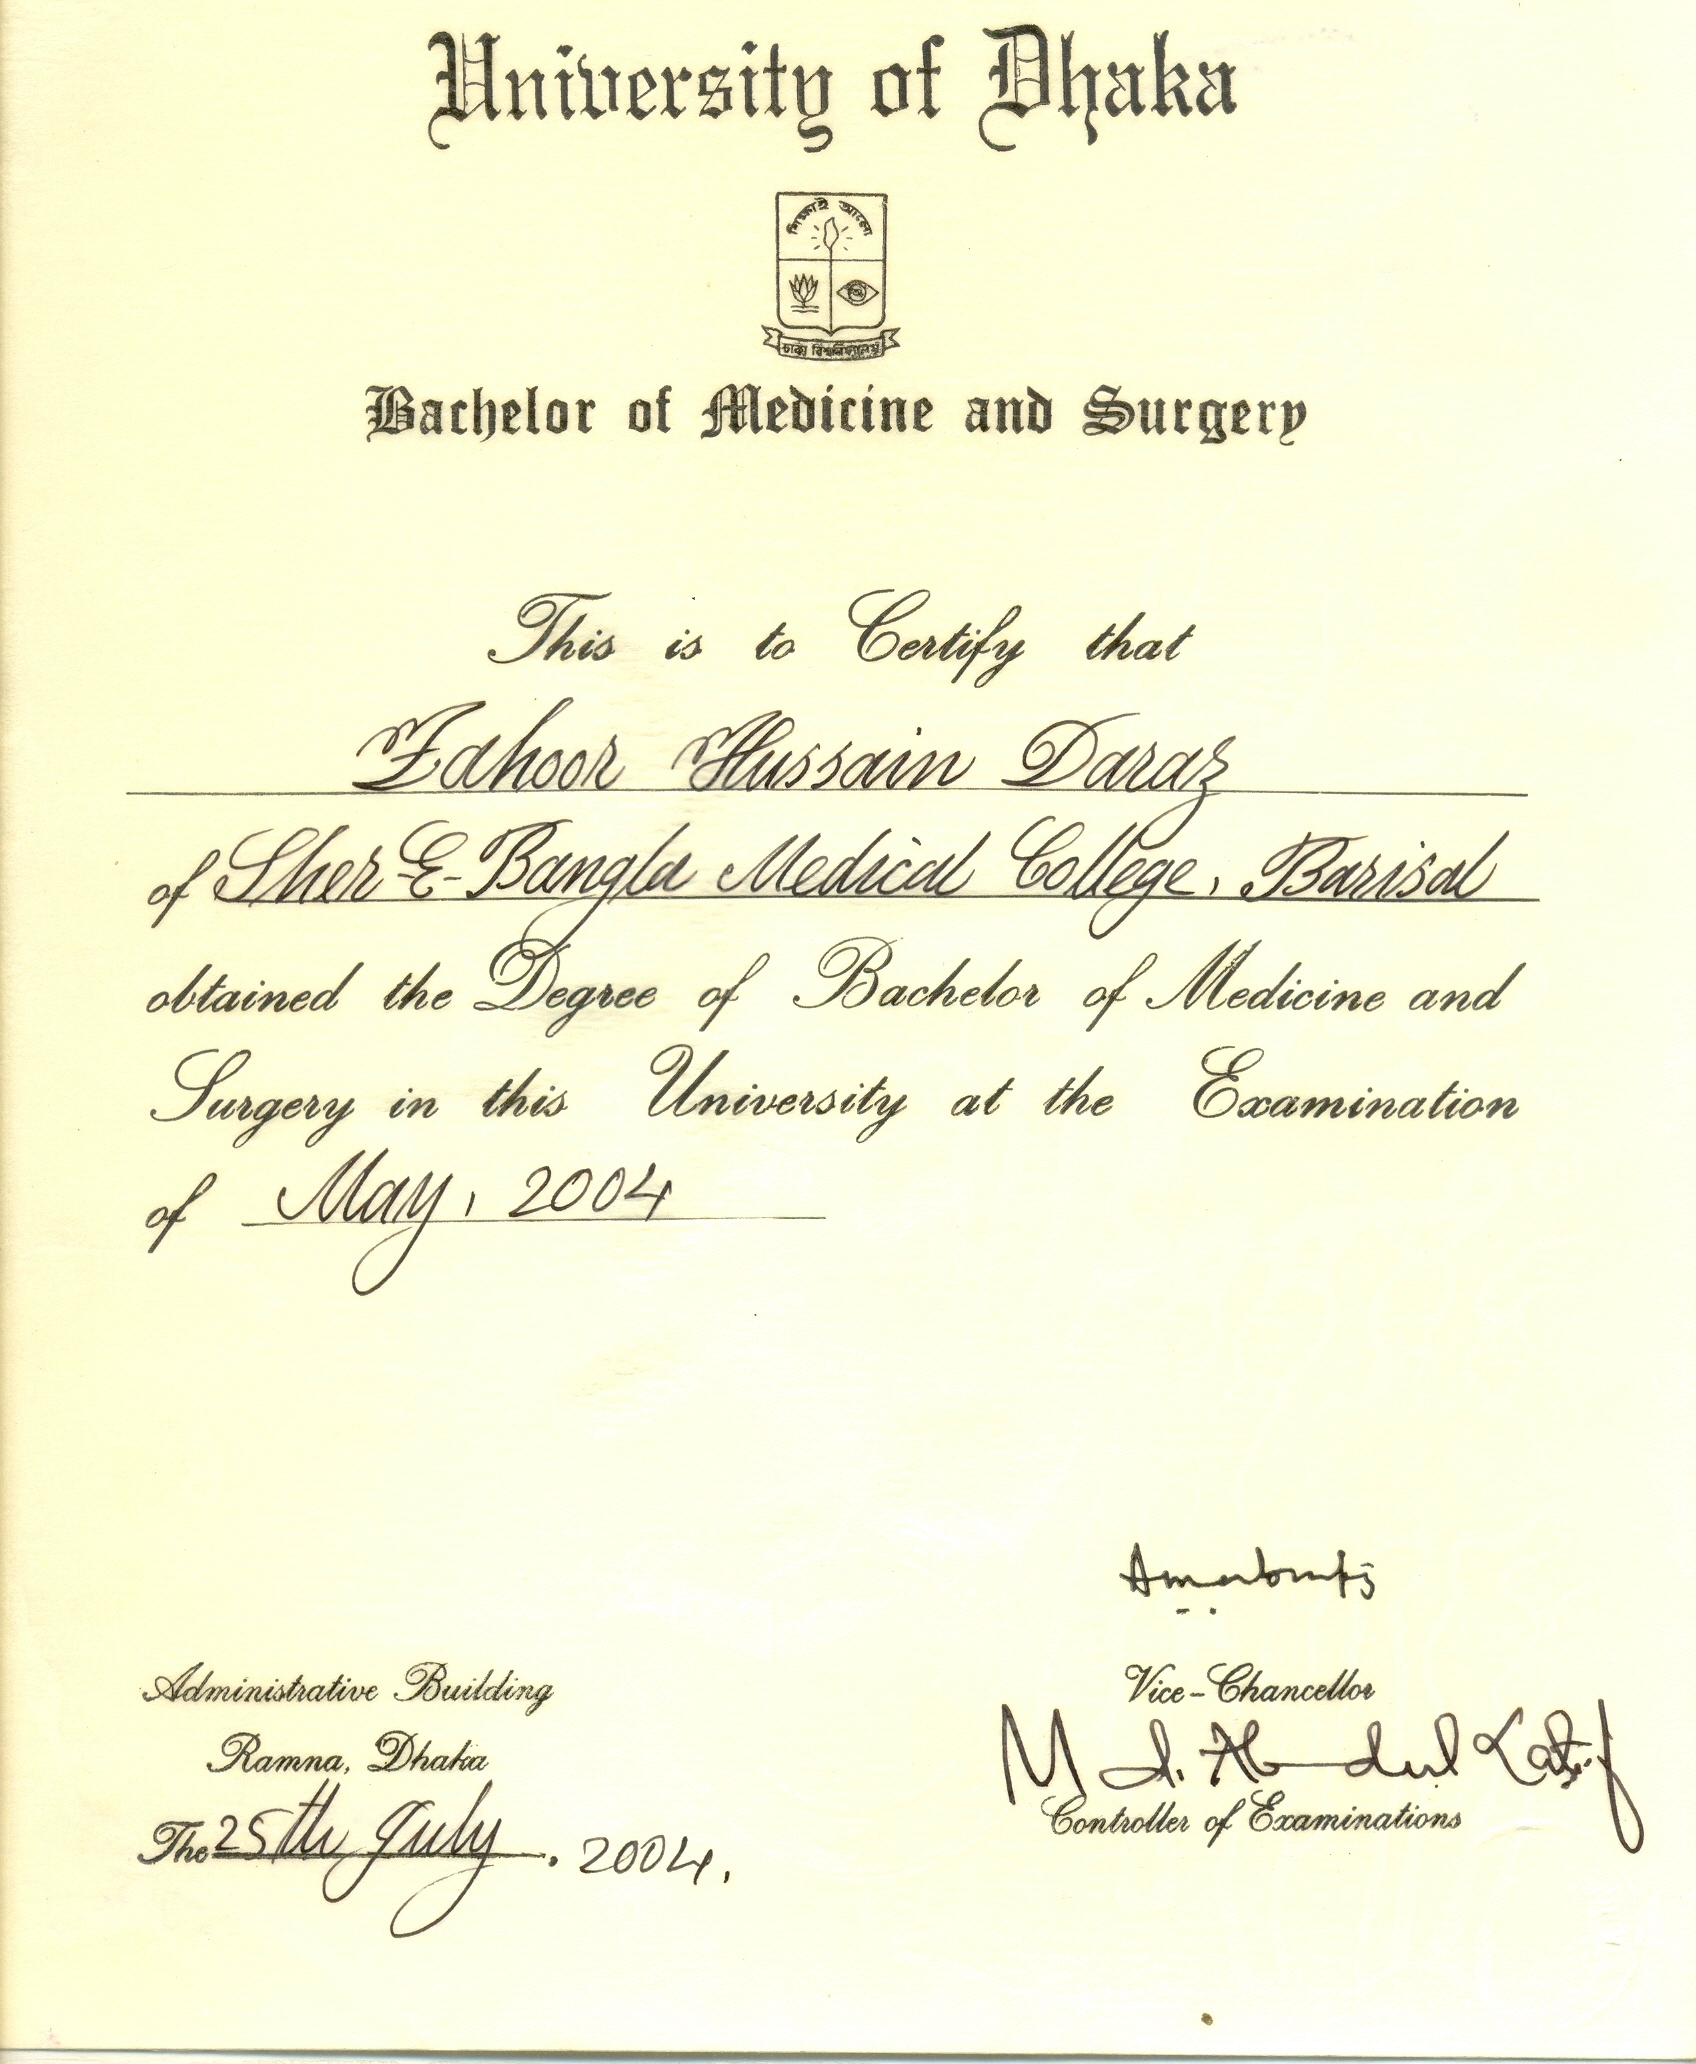 University of Dhaka
শিক্ষাই আলো
ঢাকা বিশ্ববিদ্যালয়
Bachelor of Medicine and Surgery
This is to Certify that
Zahoor Hussain Daraz
of Sher-E-Bangla Medical College, Barisal
obtained the Degree of Bachelor of Medicine and
Surgery in this University at the Examination
of May, 2004
Administrative Building
Ramna, Dhaka
The 25th July. 2004.
Vice-Chancellor
Md. Abdul Latif
Controller of Examinations